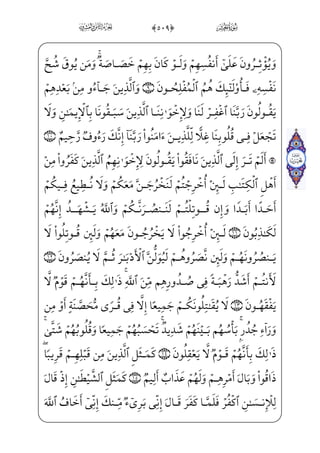 ﴿٥٠٩﴾
وَيُؤْثِرُونَ عَلَىٰٓ أَنفُسِهِمْ وَلَوْ كَانَ بِهِمْ خَصَاصَةٌ ۚ وَمَن يُوقَ شُحَّ
نَفْسِهِۦ فَأُو۟لَـٰٓئِكَ هُمُ ٱلْمُفْلِحُونَ ۝٩ وَٱلَّذِينَ جَآءُو مِنۢ بَعْدِهِمْ
يَقُولُونَ رَبَّنَا ٱغْفِرْ لَنَا وَلِإِخْوَٰنِنَا ٱلَّذِينَ سَبَقُونَا بِٱلْإِيمَـٰنِ وَلَا
تَجْعَلْ فِى قُلُوبِنَا غِلًّا لِّلَّذِينَ ءَامَنُوا۟ رَبَّنَآ إِنَّكَ رَءُوفٌ رَّحِيمٌ ۝١٠
۞ أَلَمْ تَرَ إِلَى ٱلَّذِينَ نَافَقُوا۟ يَقُولُونَ لِإِخْوَٰنِهِمُ ٱلَّذِينَ كَفَرُوا۟ مِنْ
أَهْلِ ٱلْكِتَـٰبِ لَئِنْ أُخْرِجْتُمْ لَنَخْرُجَنَّ مَعَكُمْ وَلَا نُطِيعُ فِيكُمْ
أَحَدًا أَبَدًا وَإِن قُوتِلْتُمْ لَنَنصُرَنَّكُمْ وَٱللَّهُ يَشْهَدُ إِنَّهُمْ
لَكَـٰذِبُونَ ۝١١ لَئِنْ أُخْرِجُوا۟ لَا يَخْرُجُونَ مَعَهُمْ وَلَئِن قُوتِلُوا۟ لَا
يَنصُرُونَهُمْ وَلَئِن نَّصَرُوهُمْ لَيُوَلُّنَّ ٱلْأَدْبَـٰرَ ثُمَّ لَا يُنصَرُونَ ۝١٢
لَأَنتُمْ أَشَدُّ رَهْبَةً فِى صُدُورِهِم مِّنَ ٱللَّهِ ۚ ذَٰلِكَ بِأَنَّهُمْ قَوْمٌ لَّا
يَفْقَهُونَ ۝١٣ لَا يُقَـٰتِلُونَكُمْ جَمِيعًا إِلَّا فِى قُرًى مُّحَصَّنَةٍ أَوْ مِن
وَرَآءِ جُدُرٍۭ ۚ بَأْسُهُم بَيْنَهُمْ شَدِيدٌ ۚ تَحْسَبُهُمْ جَمِيعًا وَقُلُوبُهُمْ شَتَّىٰ ۚ
ذَٰلِكَ بِأَنَّهُمْ قَوْمٌ لَّا يَعْقِلُونَ ۝١٤ كَمَثَلِ ٱلَّذِينَ مِن قَبْلِهِمْ قَرِيبًا ۖ
ذَاقُوا۟ وَبَالَ أَمْرِهِمْ وَلَهُمْ عَذَابٌ أَلِيمٌ ۝١٥ كَمَثَلِ ٱلشَّيْطَـٰنِ إِذْ قَالَ
لِلْإِنسَـٰنِ ٱكْفُرْ فَلَمَّا كَفَرَ قَالَ إِنِّى بَرِىٓءٌ مِّنكَ إِنِّىٓ أَخَافُ ٱللَّهَ